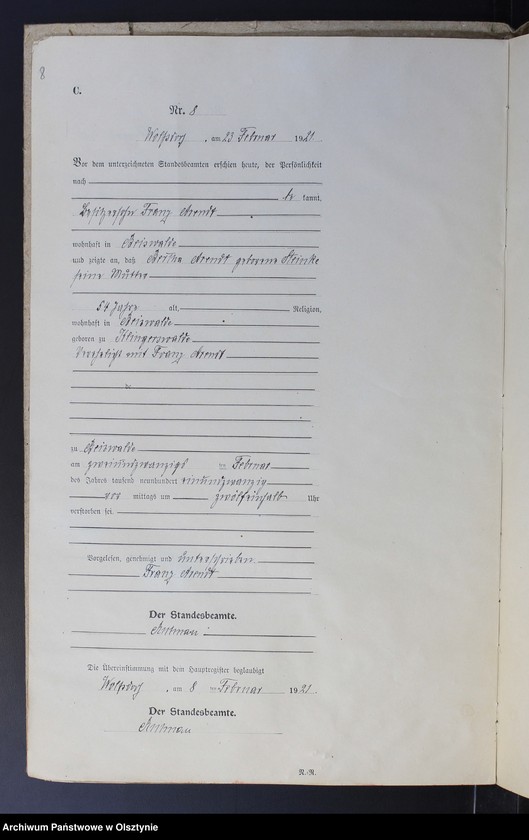 8
C.
Nr. 8
Wolfsdorf, am 23 Februar 1921
Vor dem unterzeichneten Standesbeamten erschien heute, der Persönlichkeit
nach
be kannt,
Besitzersohn Franz Arendt
wohnhaft in Beiswalde
und zeigte an, daß Bertha Arendt geborene Steinke
seine Mutter
54 Jahre alt, Religion,
wohnhaft in Beiswalde
geboren zu Klingerswalde
Verehelicht mit Franz Arendt
zu Beiswalde
am zweiundzwanzigst en Februar
des Jahres tausend neunhundert einundzwanzig
vor mittags um zwölfeinhalb Uhr
verstorben sei.
Vorgelesen, genehmigt und Unterschrieben
Franz Arendt
Der Standesbeamte.
Die Übereinstimmung mit dem Hauptregister beglaubigt
Wolfsdorf, am 8 ten Februar 1921.
Der Standesbeamte.
N.-R.
Archiwum Państwowe w Olsztynie